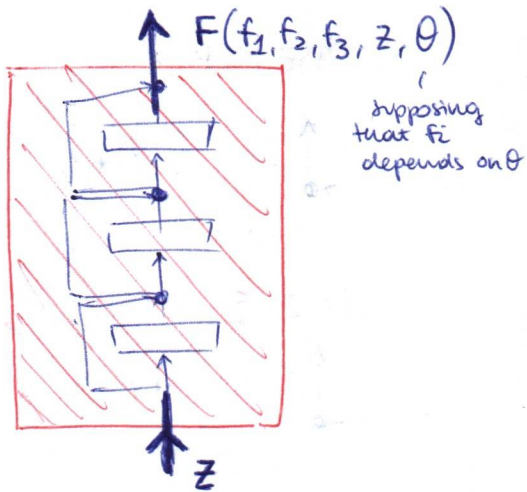 F(f₁, f₂, f₃, z, θ)
supposing
that fi
depends on θ
z